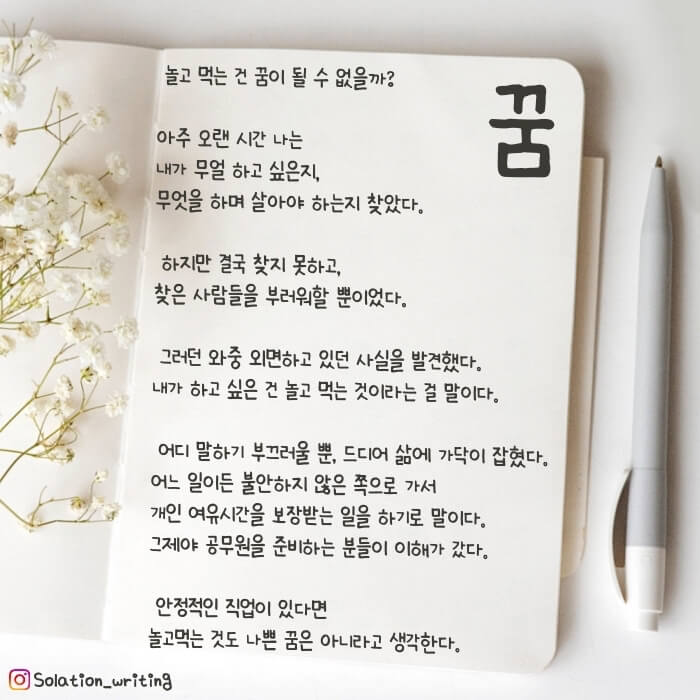 꿈
놀고 먹는 건 꿈이 될 수 없을까?
아주 오랜 시간 나는
내가 무얼 하고 싶은지,
무엇을 하며 살아야 하는지 찾았다.
하지만 결국 찾지 못하고,
찾은 사람들을 부러워할 뿐이었다.
그러던 와중 외면하고 있던 사실을 발견했다.
내가 하고 싶은 건 놀고 먹는 것이라는 걸 말이다.
어디 말하기 부끄러울 뿐, 드디어 삶에 가닥이 잡혔다.
어느 일이든 불안하지 않은 쪽으로 가서
개인 여유시간을 보장받는 일을 하기로 말이다.
그제야 공무원을 준비하는 분들이 이해가 갔다.
안정적인 직업이 있다면
놀고먹는 것도 나쁜 꿈은 아니라고 생각한다.
Solation_writing